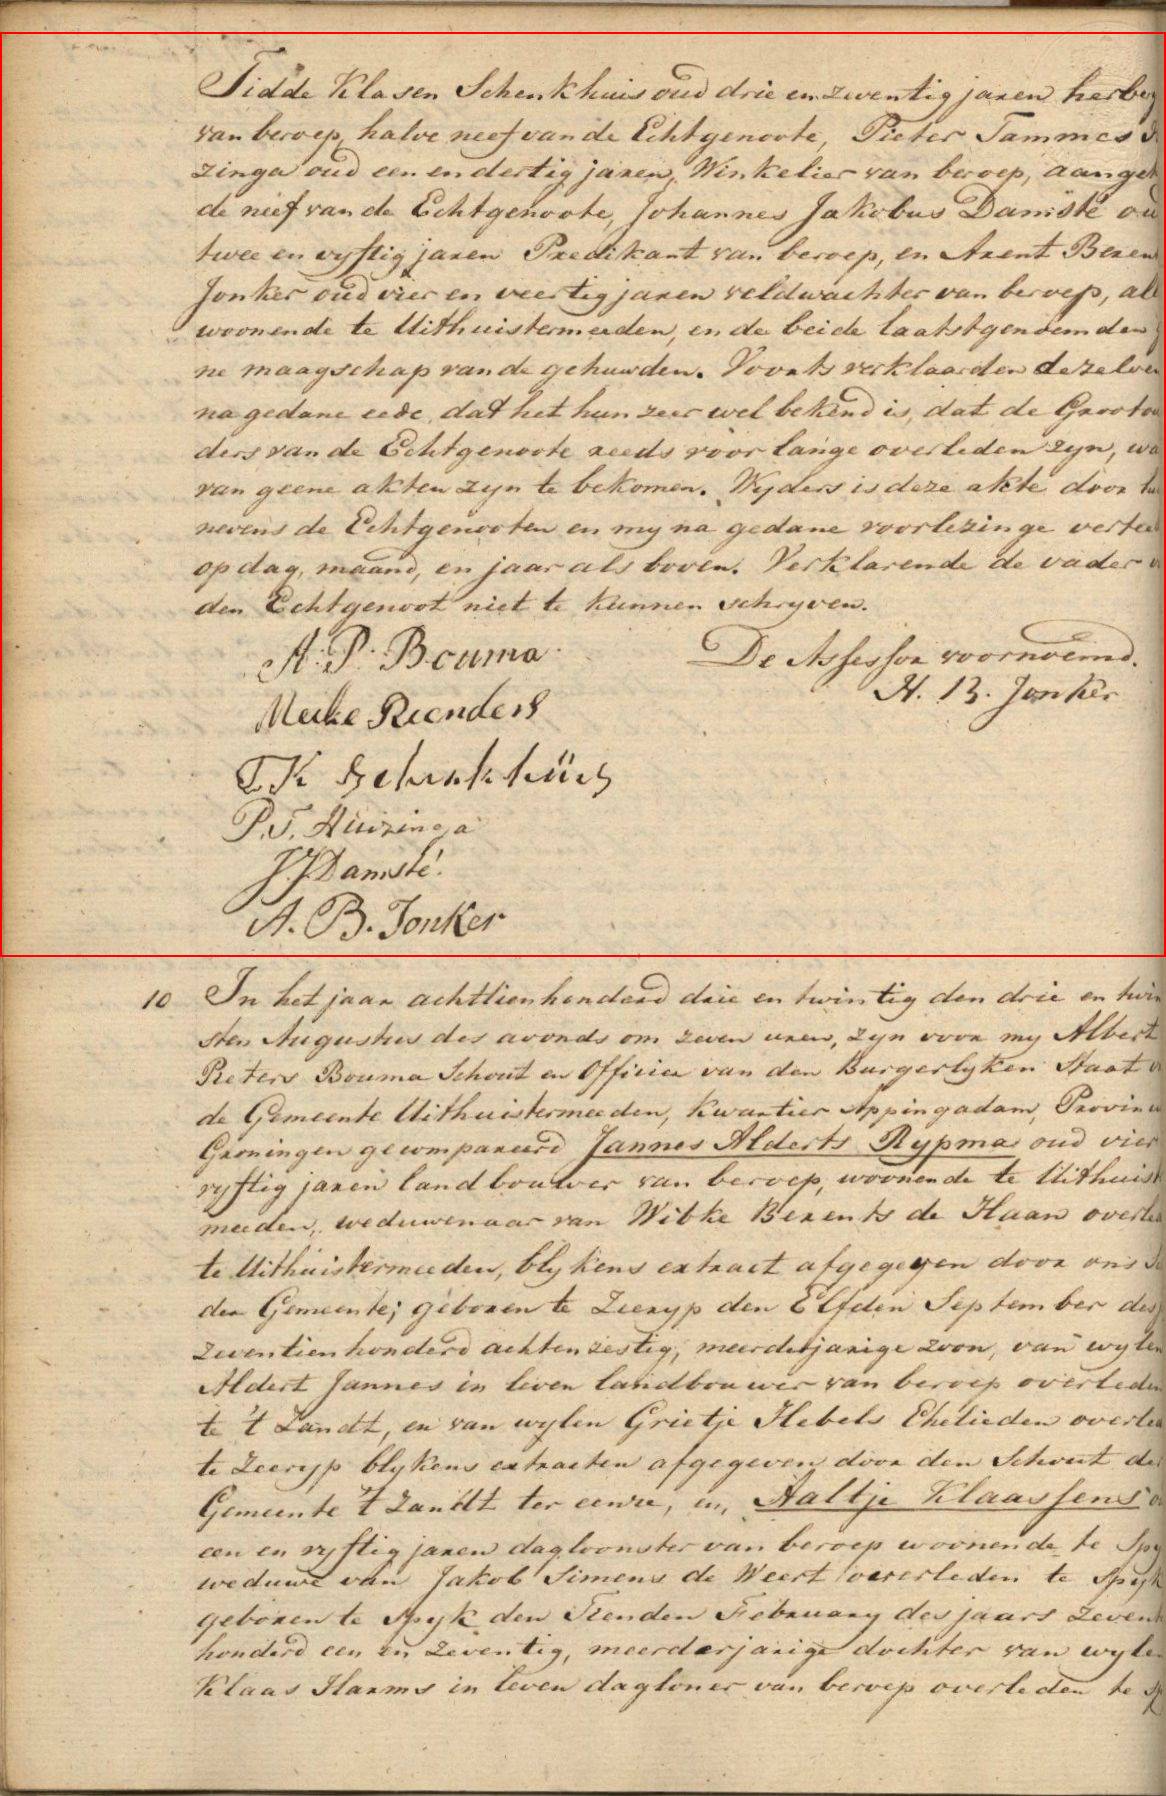 Tidde Klasen Schenkhuis oud drie en zwentig jaren herberg
van beroep, halve neef van de Echtgenoote, Pieter Tammes
zinga oud een en dertig jaren, Winkelier van beroep, aanget
de neef van de Echtgenoote, Johannes Jakobus Damsté ou
twee en vyftig jaren Predikant van beroep, en Arent Beren
Jonker oud vier en veertig jaren veldwachter van beroep, al
woonende te Uithuistermeeden, en de beide laatstgenoemden
ne maagschap van de gehuwden. Voorts verklaarden dezelve
na gedane eede, dat het hun zeer wel bekend is, dat de Grootou
ders van de Echtgenoote reeds voor lange overleden zyn, wa
van geene akten zyn te bekomen. Wyders is deze akte door hu
nevens de Echtgenooten en my na gedane voorlezinge vertee
op dag, maand, en jaar als boven. Verklarende de vader v
den Echtgenoot niet te kunnen schryven.
A. P. Bouma
De Assessor voornoemd.
H. B. Jonker
Meike Rienders
T K Schenkhüis
P. T. Huizinga
J J Damsté
A. B. Jonker
10 In het jaar achttienhonderd drie en twintig den drie en twin
sten Augustus des avonds om zeven uren, zyn voor my Albert
Pieters Bouma Schout en Officier van den Burgerlyken Staat v
de Gemeente Uithuistermeeden, Kwartier Appingadam, Provinc
Groningen gecompareerd Jannes Alderts Rypma oud vier
vyftig jaren landbouwer van beroep, woonende te Uithuist
meeden, weduwenaar van Wibke Berents de Haan overle
te Uithuistermeeden, blykens extract afgegeven door ons
der Gemeente; geboren te Zeeryp den Elfden September des
zeventienhonderd achtenzestig, meerderjarige zoon, van wylen
Aldert Jannes in leven landbouwer van beroep overleden
te 't Zandt, en van wylen Grietje Hebels Ehelieden overle
te Zeeryp blykens extracten afgegeven door den Schout der
Gemeente 't Zandt ter eenre, en, Aaltje Klaassens o
een en vyftig jaren dagloonster van beroep woonende te Spy
weduwe van Jakob Simens de Weert overleden te Spyk
geboren te Spyk den Tienden February des jaars zevent
honderd een en zeventig, meerderjarige dochter van wylen
Klaas Harms in leven dagloner van beroep overleden te Sp